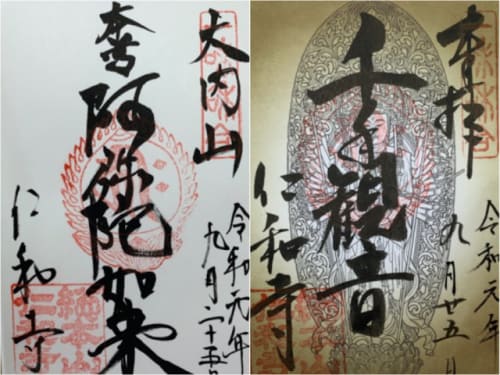 大内山
令和元年
九月二十五日
本尊
阿弥陀如来
仁和寺
總本山
仁和寺
奉拝
令和元年
九月廿五日
千手観音
仁和寺